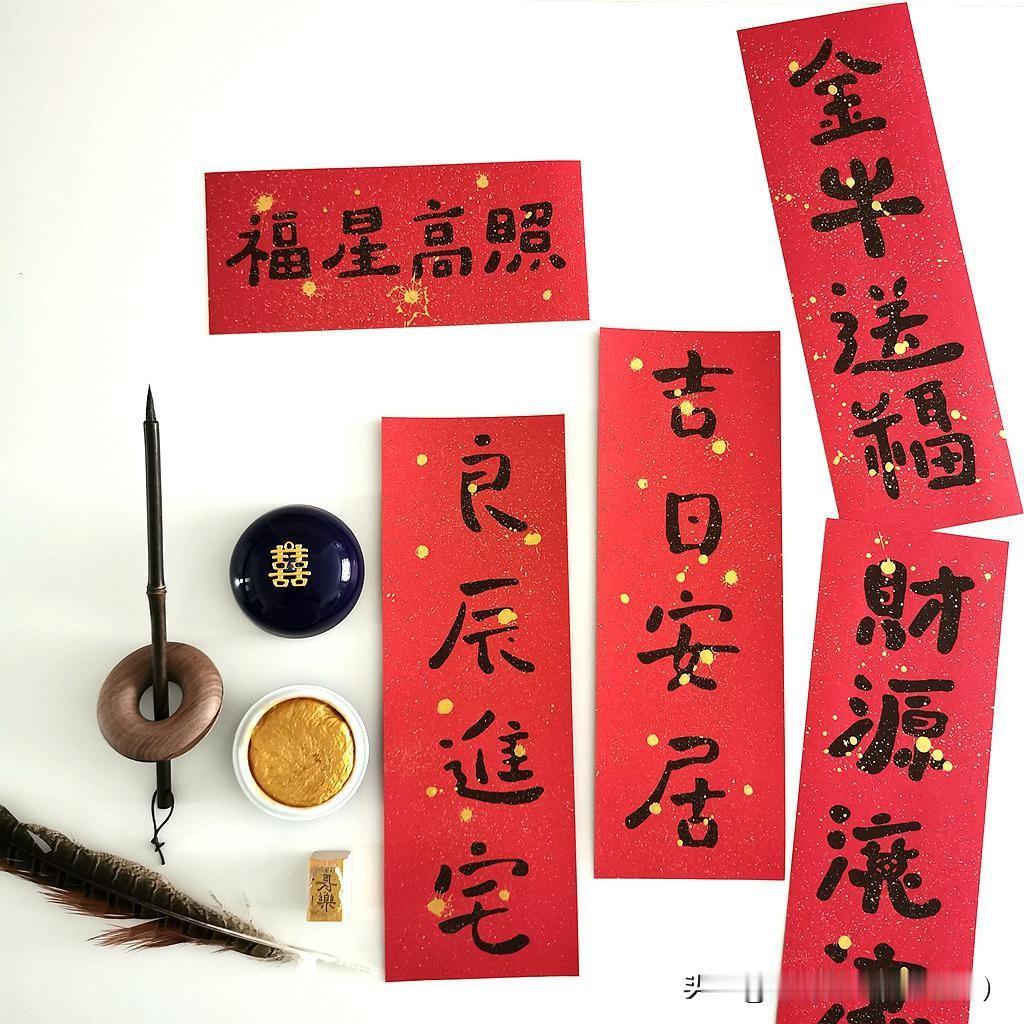 福星高照
金牛送福
吉日安居
良辰進宅
財源滾
囍